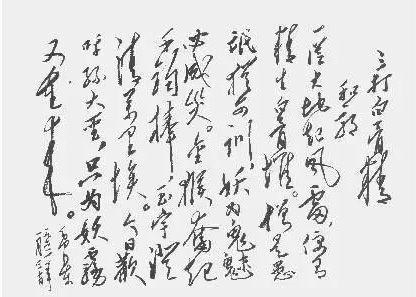 三打白骨精
一从大地起风雷，便有
精生白骨堆。僧是愚
氓犹可训，妖为鬼蜮
必成灾。金猴奋起
千钧棒，玉宇澄
清万里埃。今日欢
呼孙大圣，只为妖雾
又重来。